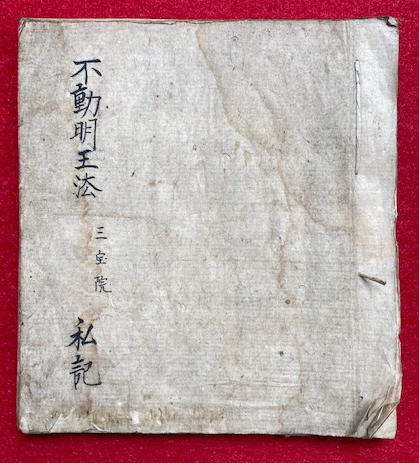 不動明王法 三宝院 私記